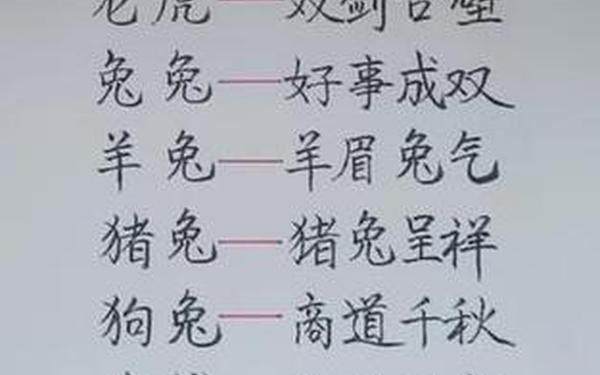 老虎——双剑合璧
兔兔——好事成双
羊兔——羊眉兔气
猪兔——猪兔呈祥
狗兔——商道千秋